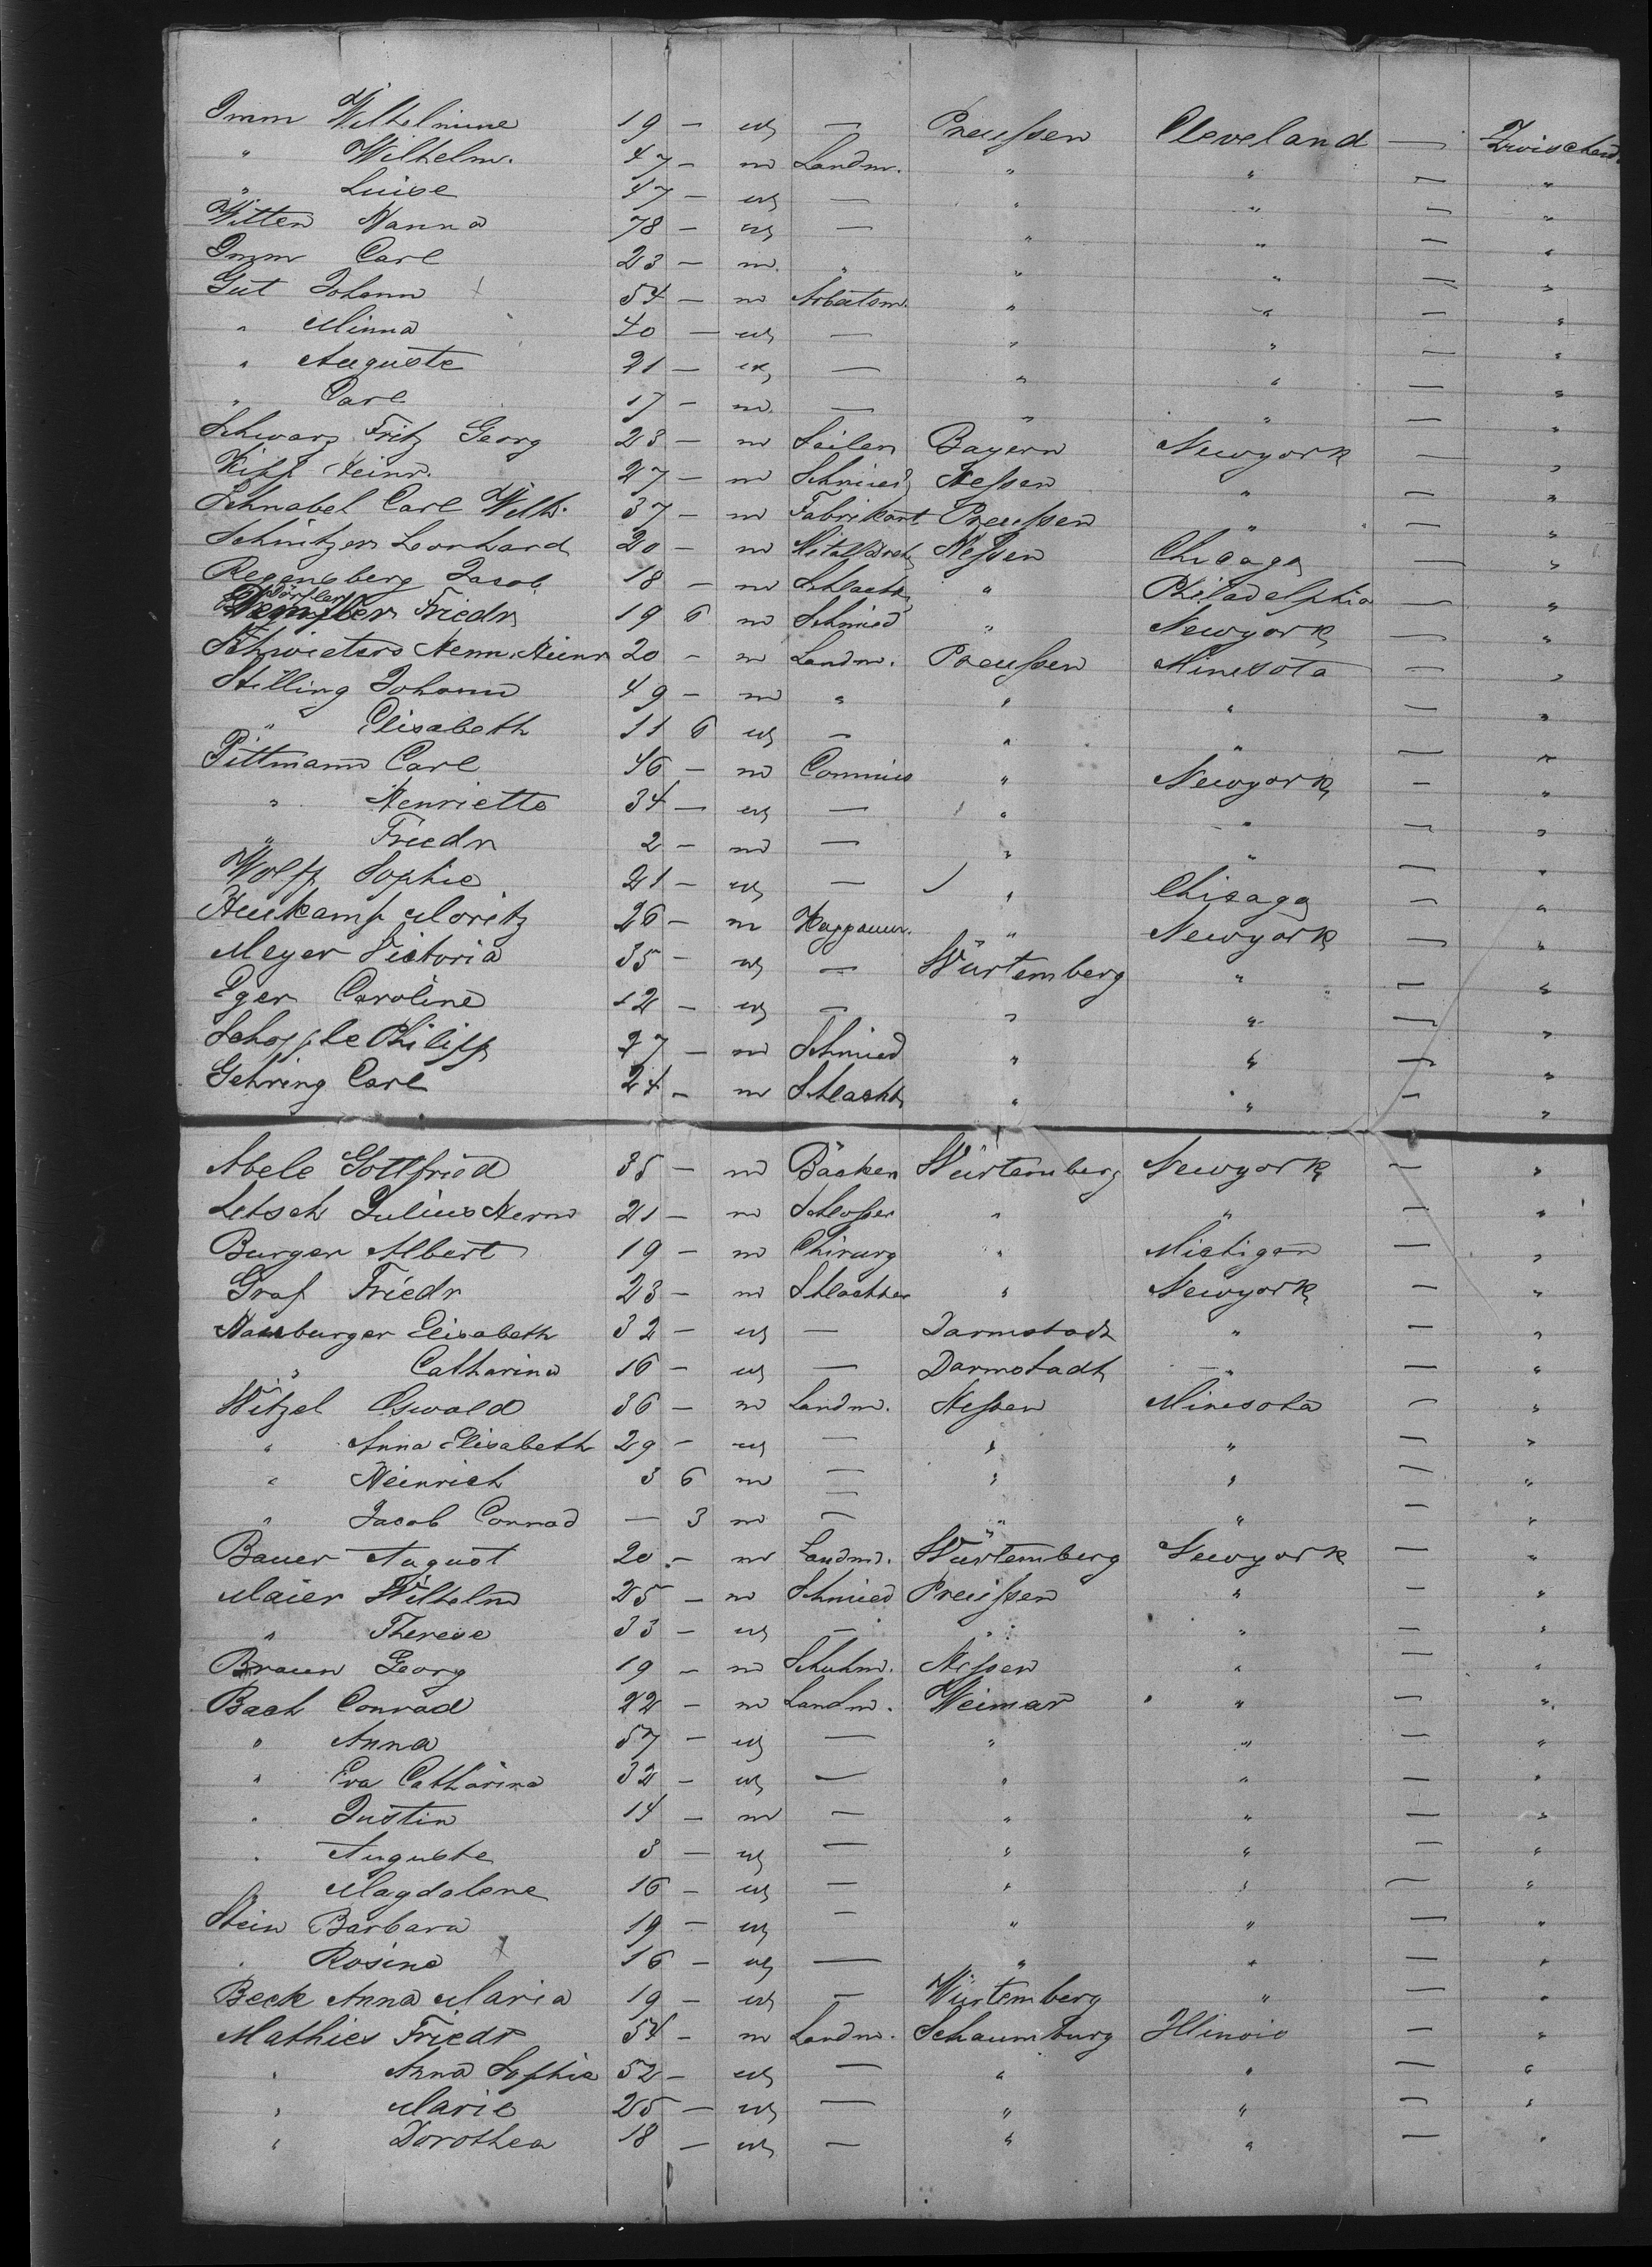 Imm Wilhelmine 19 — w — Preußen Cleveland — Zwischend.
" Wilhelm. 47 — m Landm. " " — "
" Luise 47 — w — " " — "
Witten Hanna 78 — w — " " — "
Imm Carl 23 — m. " " " — "
Gut Johann 54 — m Arbeitsm. " " — "
" Minna 40 — w — " " — "
" Auguste 21 — w — " " — "
" Carl 17 — m. — " " — "
Schwarz Fritz Georg 23 — m Seiler Bayern Newyork — "
Kipp Heinr. 27 — m Schmied Hessen " — "
Schnabel Carl Wilh. 37 — m Fabrikant Preußen " — "
Schnitzer Leonhard 20 — m Hessen Chicago — "
Regensberg Jacob 18 — m Schlacht " Philadelphia — "
Dörfler Friedr 19 6 m Schmied " Newyork — "
Schwieters Herm. Heinr 20 — m Landm. Preußen Minesota — "
Stilling Johann 49 — m " " " — "
" Elisabeth 11 6 w — " " — "
Pittmann Carl 46 — m Commis " Newyork — "
" Henriette 34 — w — " " — "
" Friedr 2 — m — " " — "
Wolff Sophie 21 — w — " Chicago — "
Heukamp Moritz 26 — m " Newyork — "
Meyer Victoria 35 — w — Würtemberg " — "
Eger Caroline 12 — w — " " — "
Schopple Philipp 27 — m Schmied " " — "
Gehring Carl 24 — m Schlacht " " — "
Abele Gottfried 35 — m Bäcker Würtemberg Newyork — "
Letsch Julius Herm 21 — m Schlosser " " — "
Burger Albert 19 — m Chirurg " Michigan — "
Graf Friedr 23 — m Schlachter " Newyork — "
Hamburger Elisabeth 32 — w — Darmstadt " — "
" Catharina 16 — w — Darmstadt " — "
Witzel Oswald 36 — m Landm. Hessen Minesota — "
" Anna Elisabeth 29 — w — " " — "
" Heinrich 3 6 m — " " — "
" Jacob Conrad — 3 m — " " — "
Bauer August 20 — m Landm. Würtemberg Newyork — "
Maier Wilhelm 25 — m Schmied Preußen " — "
" Therese 33 — w — " " — "
Braun Georg 19 — m Schuhm. Hessen " — "
Bach Conrad 22 — m Landm. Weimar " — "
" Anna 57 — w — " " — "
" Eva Catharina 32 — w — " " — "
" Justin 14 — m — " " — "
" Auguste 3 — w — " " — "
" Magdalene 16 — w — " " — "
Stein Barbara 19 — w — " " — "
" Rosine 16 — w — " " — "
Beck Anna Maria 19 — w — Würtemberg " — "
Mathies Friedr 54 — m Landm. Schaumburg Illinois — "
" Anna Sophie 52 — w — " " — "
" Marie 25 — w — " " — "
" Dorothea 18 — w — " " — "